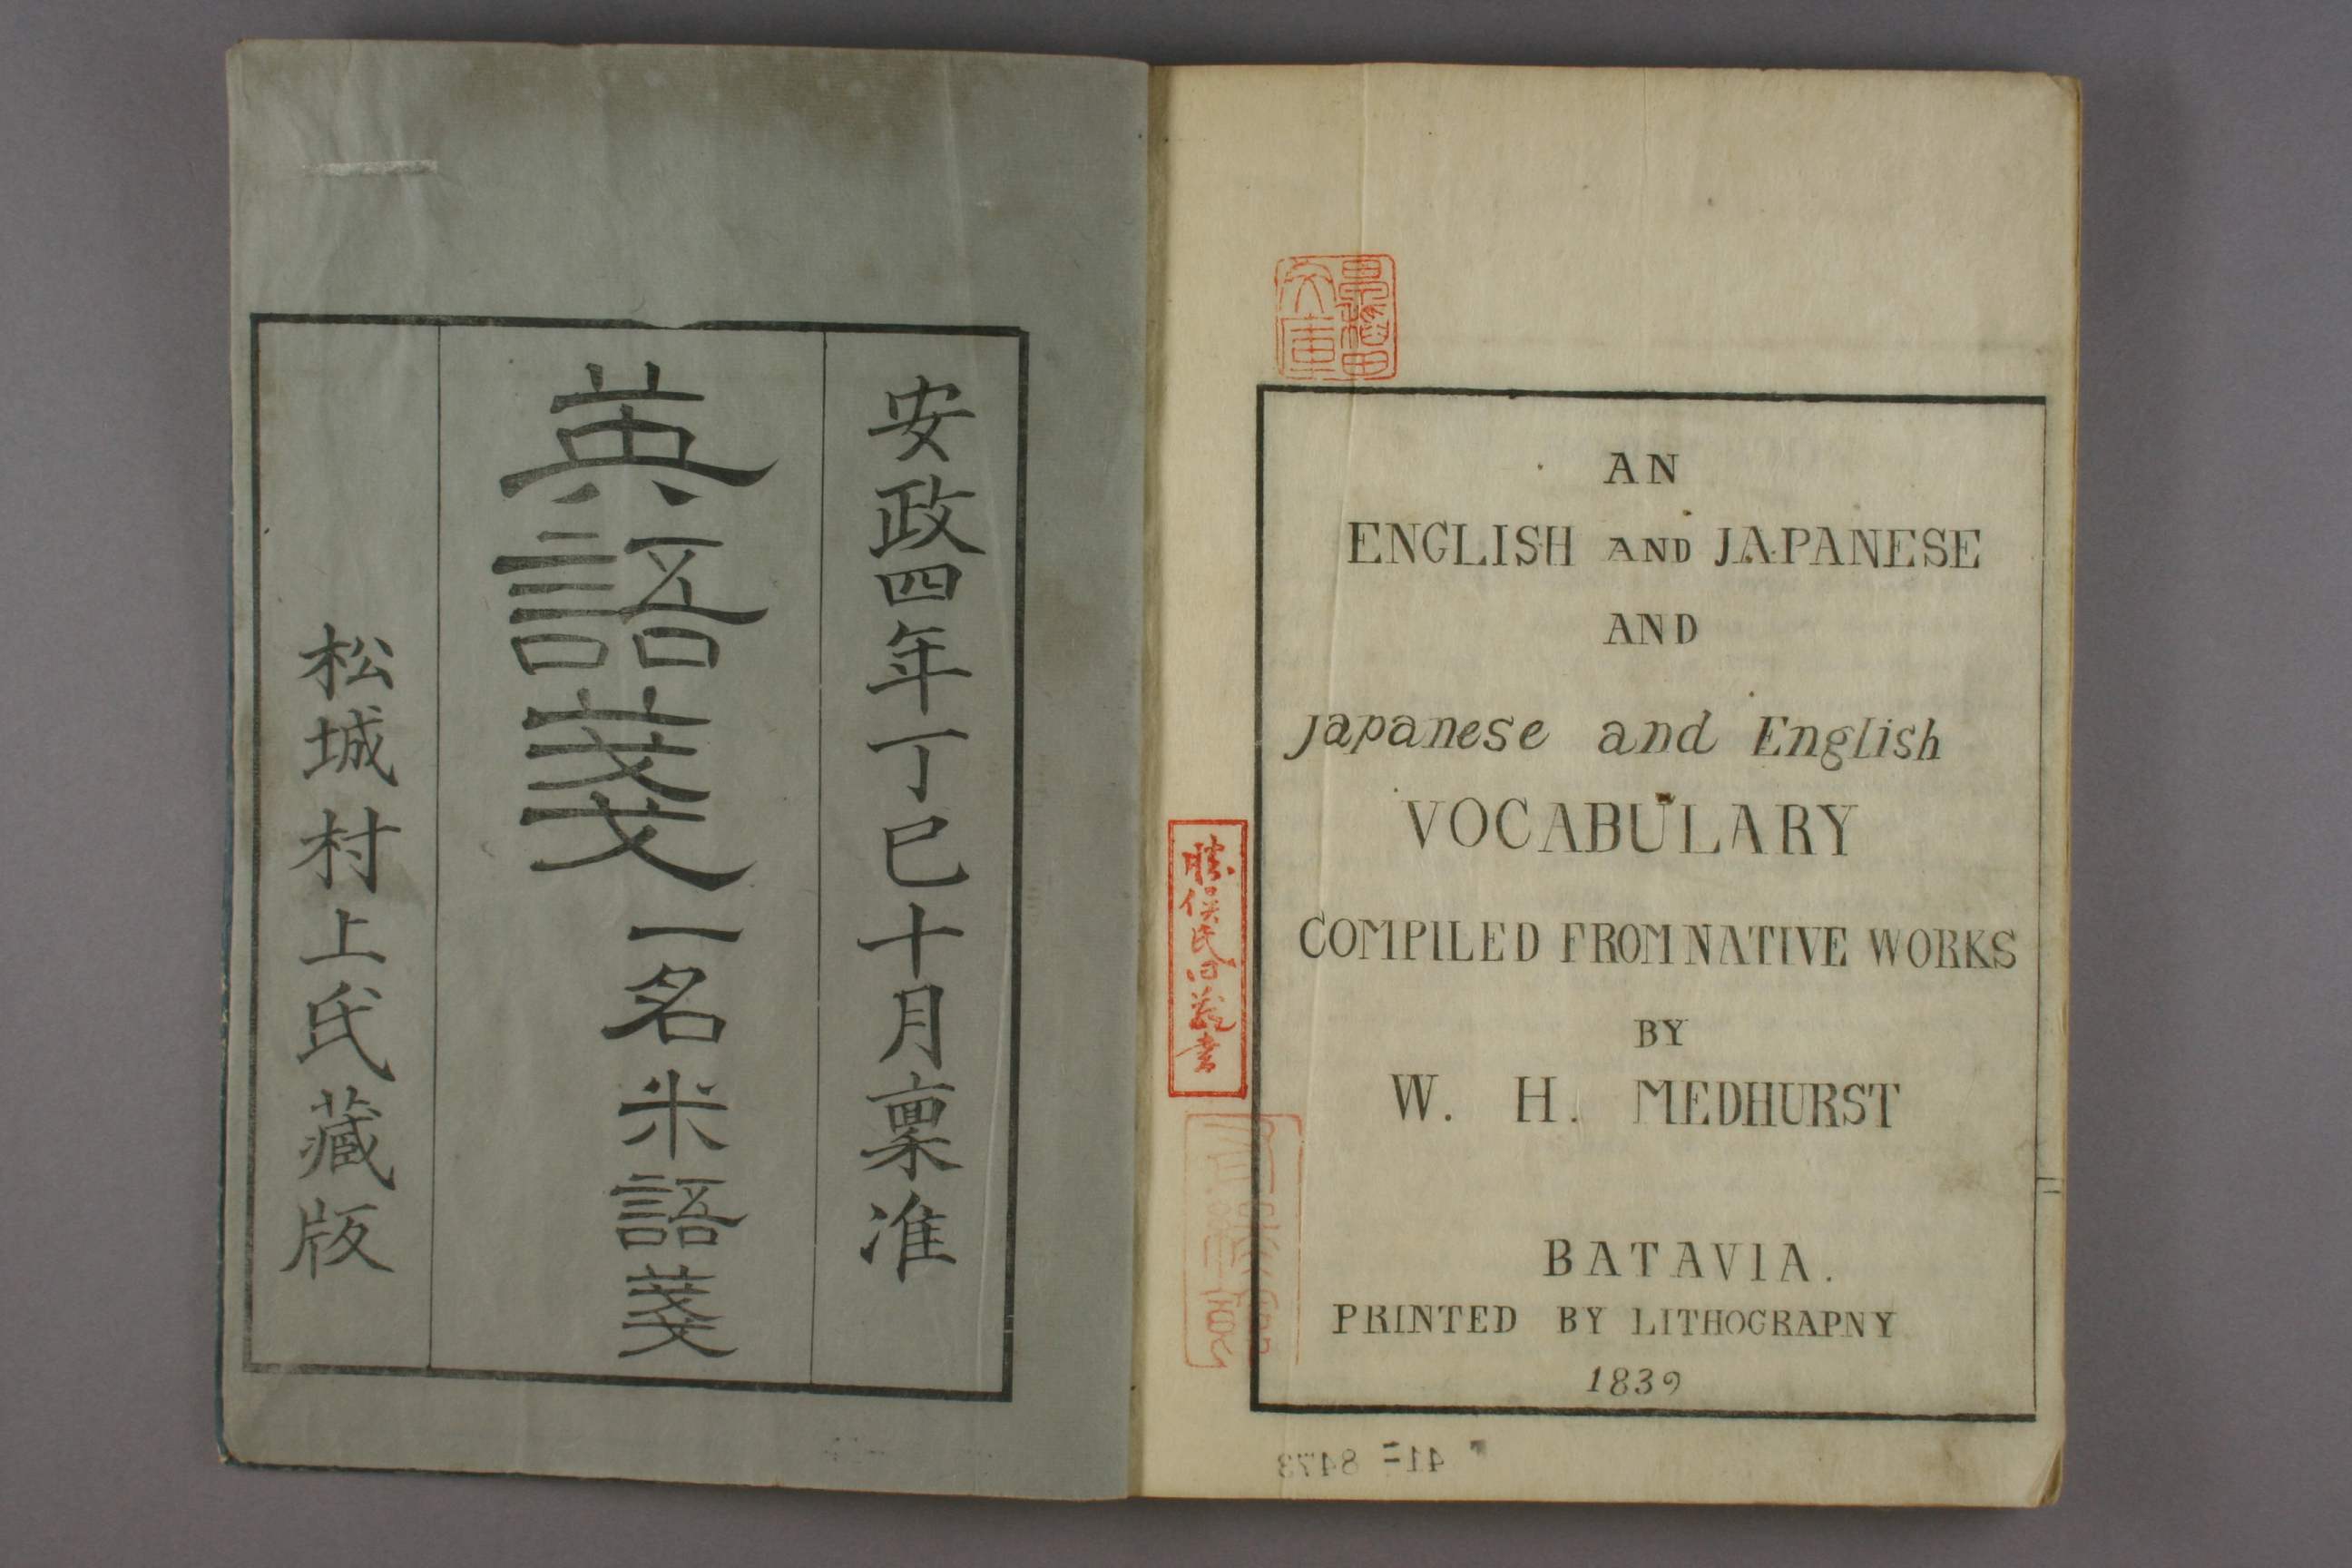 安政四年丁巳十月稟准
英語箋
一名米語箋
松城村上氏藏版
AN
ENGLISH AND JAPANESE
AND
Japanese and English
VOCABULARY
COMPILED FROM NATIVE WORKS
BY
W. H. MEDHURST
BATAVIA.
PRINTED BY LITHOGRAPNY
1839
文庫
41= 8473